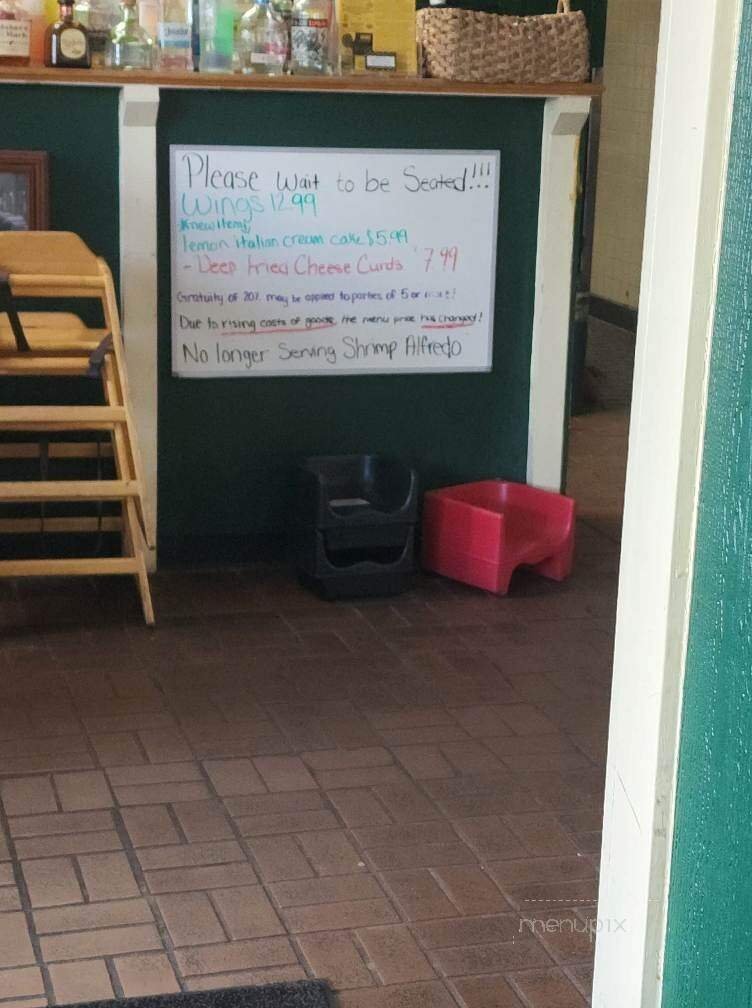 Please Wait to be Seated!!!
Wings 12.99
*new item*
lemon italian cream cake $5.99
- Deep Fried Cheese Curds $7.99
Gratuity of 20% may be applied to parties of 5 or more!
Due to rising costs of goods, the menu price has changed!
No longer Serving Shrimp Alfredo
menupix